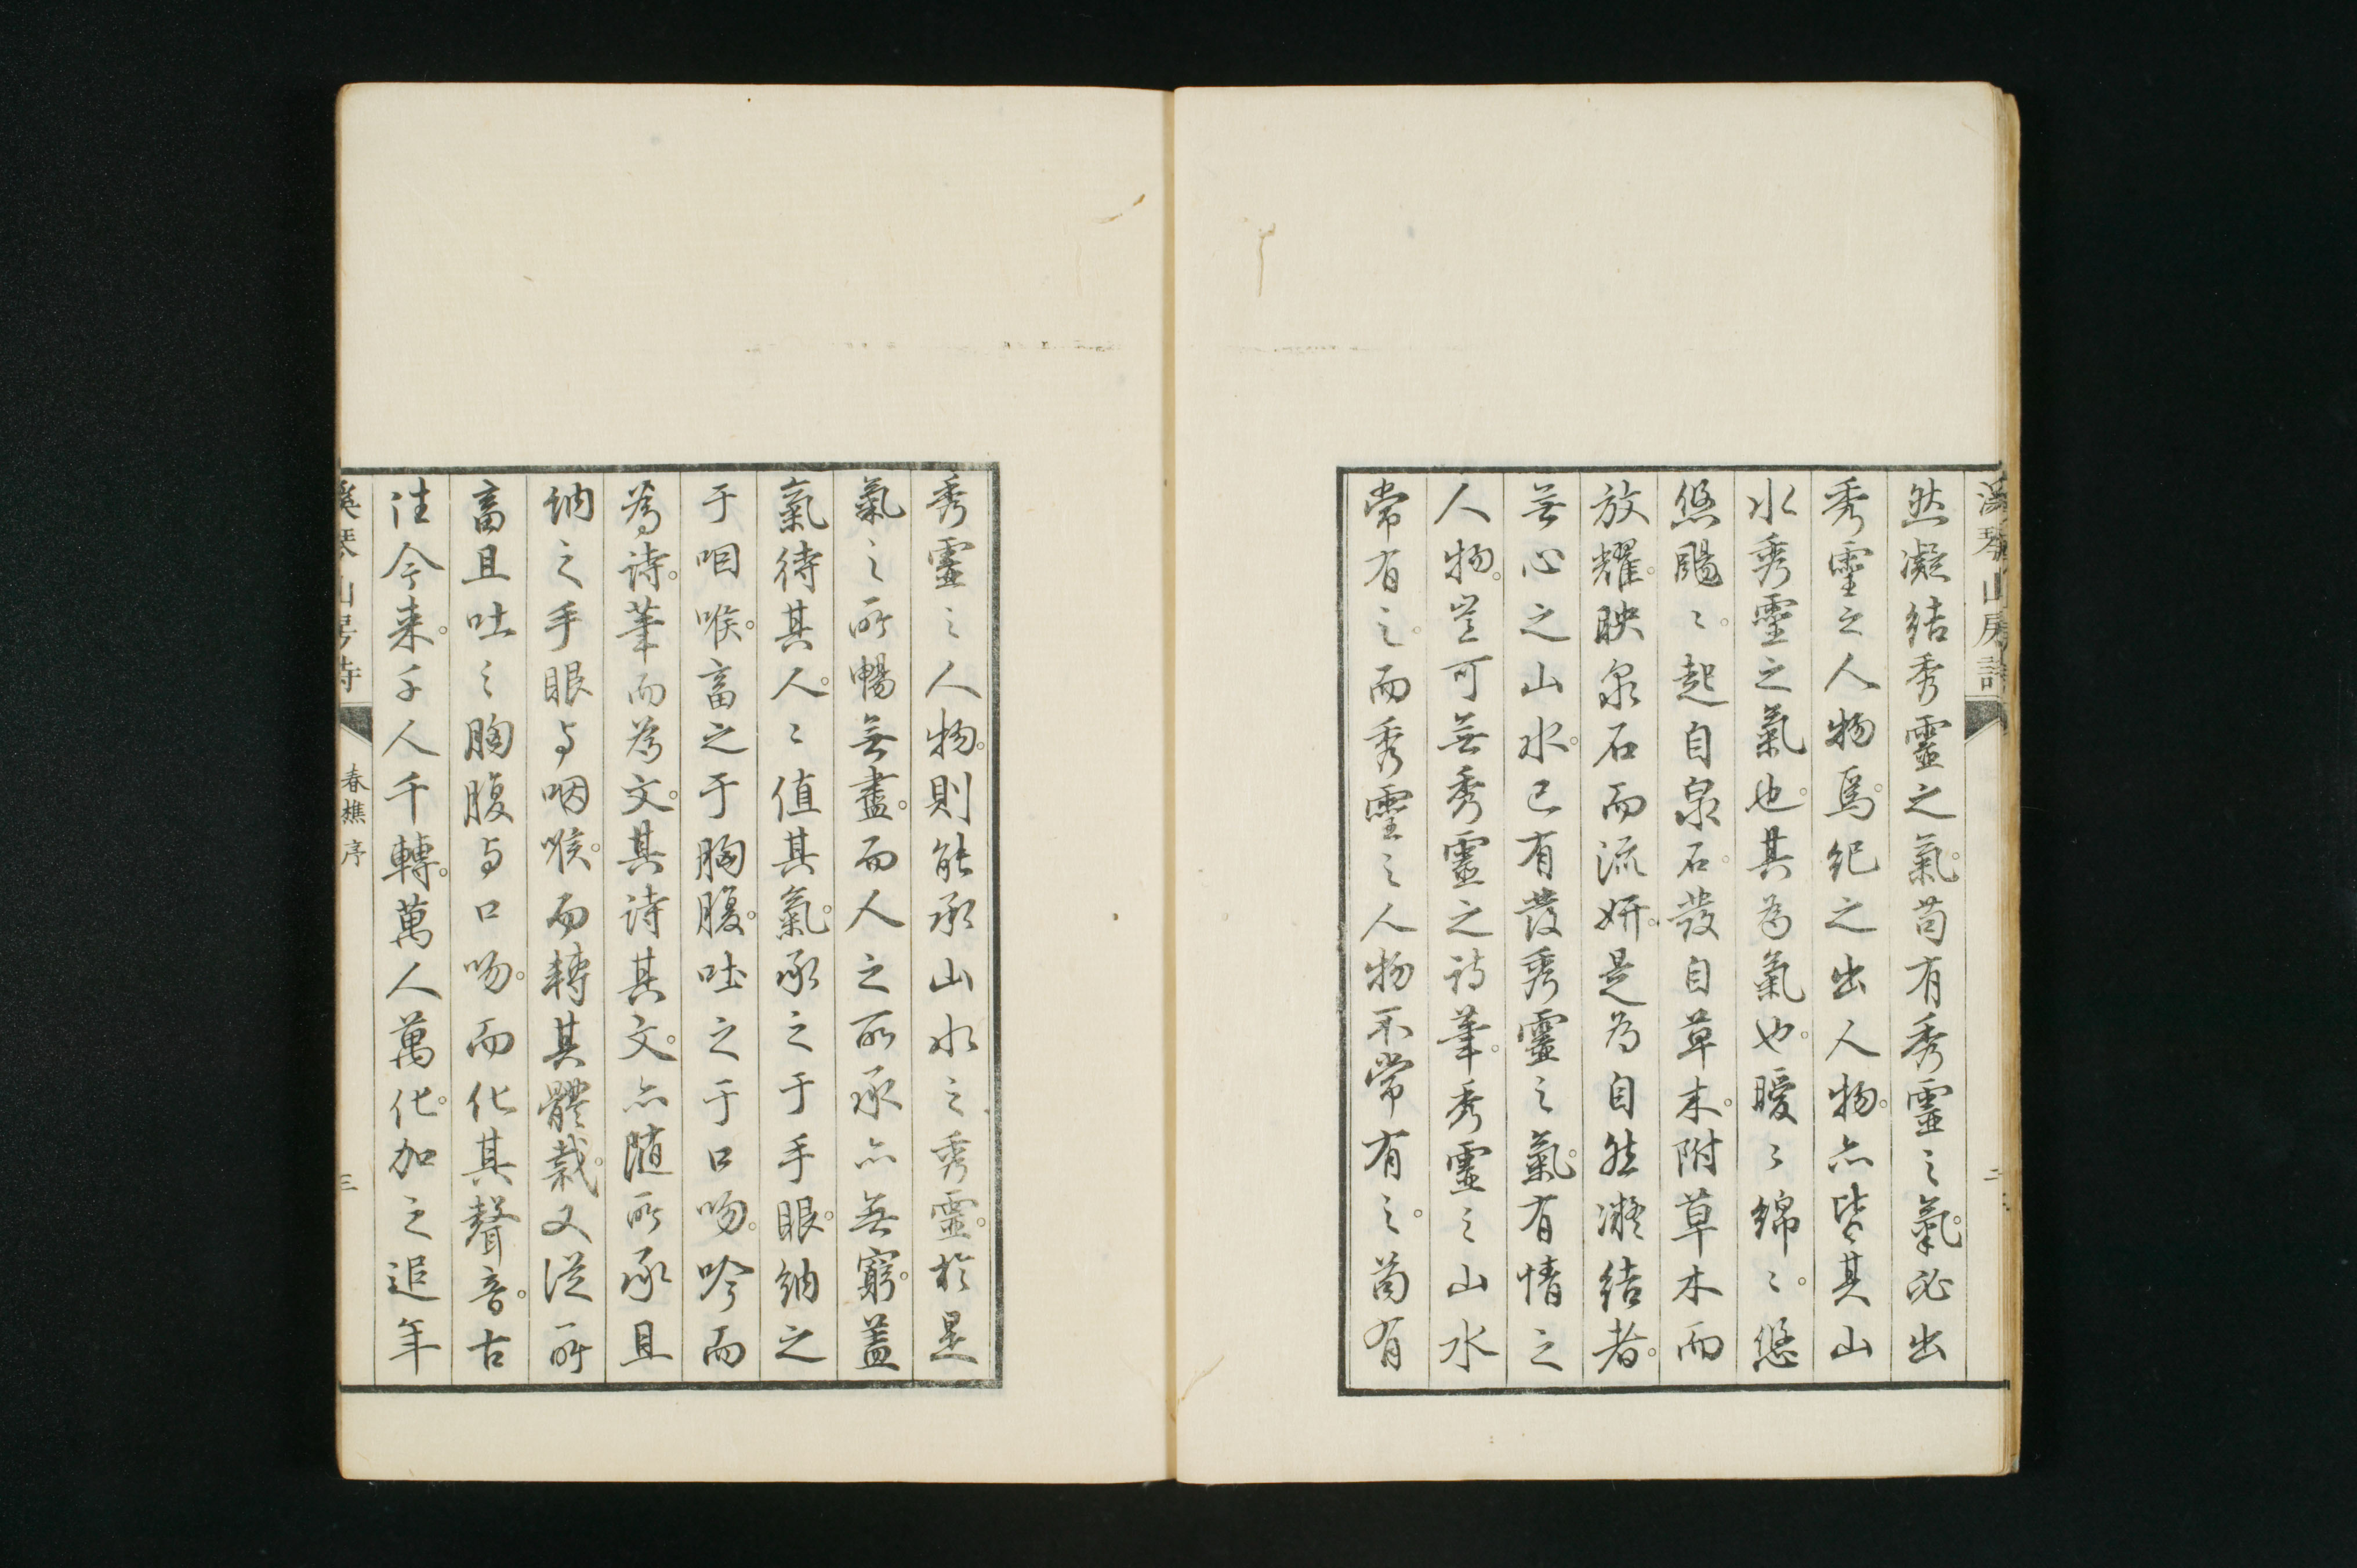 溪琴山房詩
二
然凝結秀靈之氣。苟有秀靈之氣。必出
秀靈之人物焉。紀之出人物。亦皆其山
水秀靈之氣也。其為氣也。曖〻綿〻。悠
悠颺〻。起自泉石。發自草木。附草木而
放耀。映泉石而流妍。是為自然凝結者。
無心之山水。已有發秀靈之氣。有情之
人物。豈可無秀靈之詩筆。秀靈之山水
常有之。而秀靈之人物不常有之。苟有
秀靈之人物。則能承山水之秀靈。於是
氣之所暢無盡。而人之所承亦無窮。蓋
氣待其人。人〻值其氣。承之于手眼。納之
于咽喉。畜之于胸腹。吐之于口吻。吟而
為詩。筆而為文。其詩其文。亦随所承且
納之手眼与咽喉。而轉其體裁。又從所
畜且吐之胸腹与口吻。而化其聲音。古
往今来。千人千轉。萬人萬化。加之追年
溪琴山房詩
春樵序
三